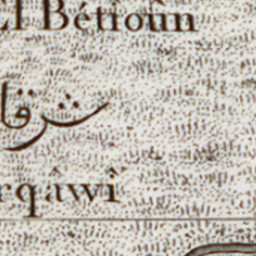 El Bétîoûn
شرقا
rqâwî